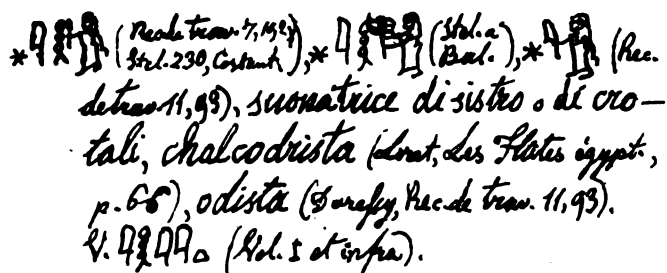 * (Rec. de trav. 7, 192;
Stel. 230, Costant.), * (Stel. a
Berl.), * (Rec.
de trav. 11, 93), suonatrice di sistro o di cro-
tali, chalcodrista (Loret, Les Flûtes égypt.,
p. 66), odista (, Rec. de trav. 11, 93).
V. (Vol. I et infra).